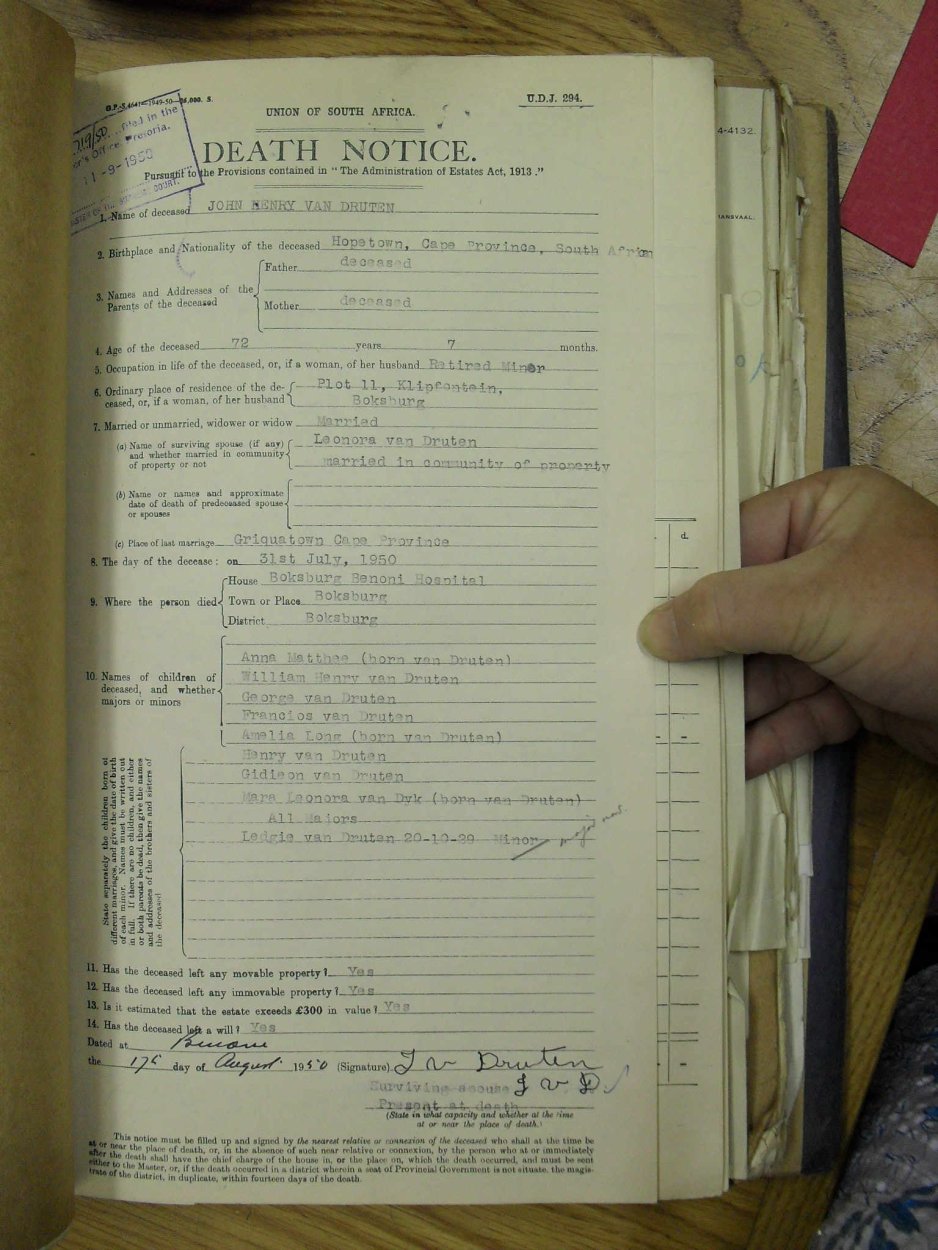 G.P.-S.4641—1949-50—    ,000. S.
U.D.J. 294.
UNION OF SOUTH AFRICA.
719/50. filed in the
Office Pretoria.
11-9-1950
COURT.
DEATH NOTICE.
Pursuant to the Provisions contained in "The Administration of Estates Act, 1913."
1. Name of deceased JOHN HENRY VAN DRUTEN
2. Birthplace and Nationality of the deceased Hopetown, Cape Province, South African
3. Names and Addresses of the Parents of the deceased
Father deceased
Mother deceased
4. Age of the deceased 72 years 7 months.
5. Occupation in life of the deceased, or, if a woman, of her husband Retired Minor
6. Ordinary place of residence of the de- Plot 11, Klipfontein,
ceased, or, if a woman, of her husband Boksburg
7. Married or unmarried, widower or widow Married
(a) Name of surviving spouse (if any) Leonora van Druten
and whether married in community
of property or not married in community of property
(b) Name or names and approximate
date of death of predeceased spouse
or spouses
(c) Place of last marriage Griquatown Cape Province
8. The day of the decease: on 31st July, 1950
9. Where the person died
House Boksburg Benoni Hospital
Town or Place Boksburg
District Boksburg
10. Names of children of
deceased, and whether
majors or minors
Anna Matthee (born van Druten)
William Henry van Druten
George van Druten
Francios van Druten
Amelia Long (born van Druten)
Henry van Druten
Gidieon van Druten
Mara Leonora van Dyk (born van Druten)
All Majors
Ledgie van Druten 20-10-29 Minor major now.
State separately the children born of
different marriages, and give the date of birth
of each minor. Names must be written out
in full. If there are no children, and either
or both parents be dead, then give the names
and addresses of the brothers and sisters of
the deceased
11. Has the deceased left any movable property? Yes
12. Has the deceased left any immovable property? Yes
13. Is it estimated that the estate exceeds £300 in value? Yes
14. Has the deceased left a will? Yes
Dated at Benoni
the 17th day of August 1950 (Signature) L v Druten
Surviving spouse L v D.
Present at death
(State in what capacity and whether at the time
at or near the place of death.)
This notice must be filled up and signed by the nearest relative or connexion of the deceased who shall at the time be
at or near the place of death, or, in the absence of such near relative or connexion, by the person who at or immediately
after the death shall have the chief charge of the house in, or the place on, which the death occurred, and must be sent
either to the Master, or, if the death occurred in a district wherein a seat of Provincial Government is not situate, the magis-
trate of the district, in duplicate, within fourteen days of the death.
4-4132.
RANSVAAL.
ok
d.